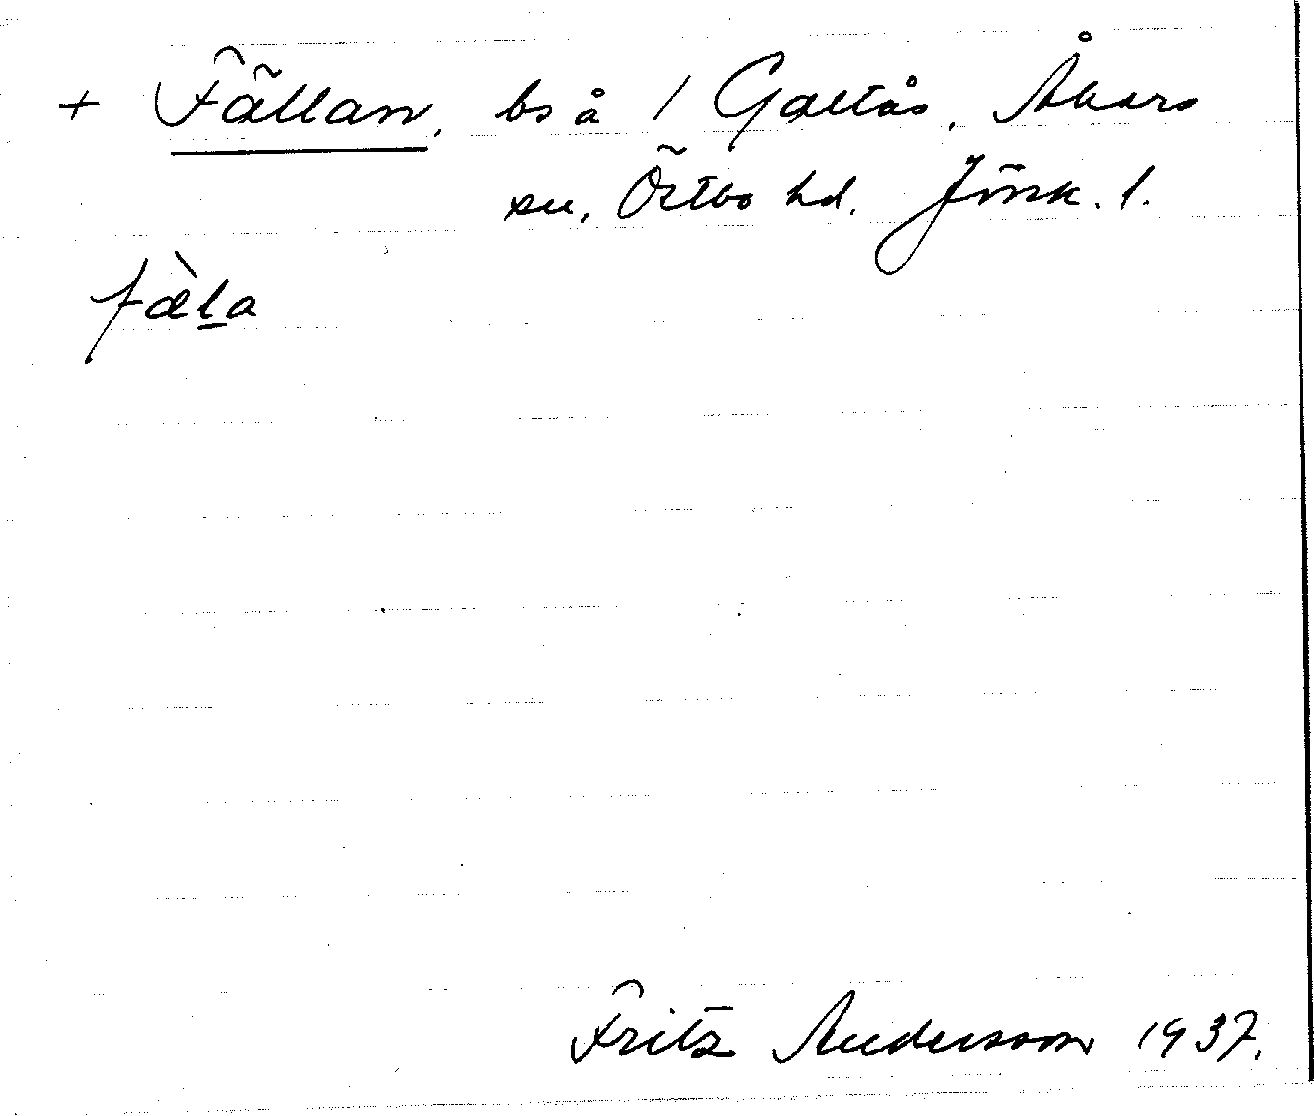 + Fällan, bs å 1 Galtås, Åkers
sn, Östbo hd. Jönk. l.
fàl̲a
Fritz Andersson 1937.